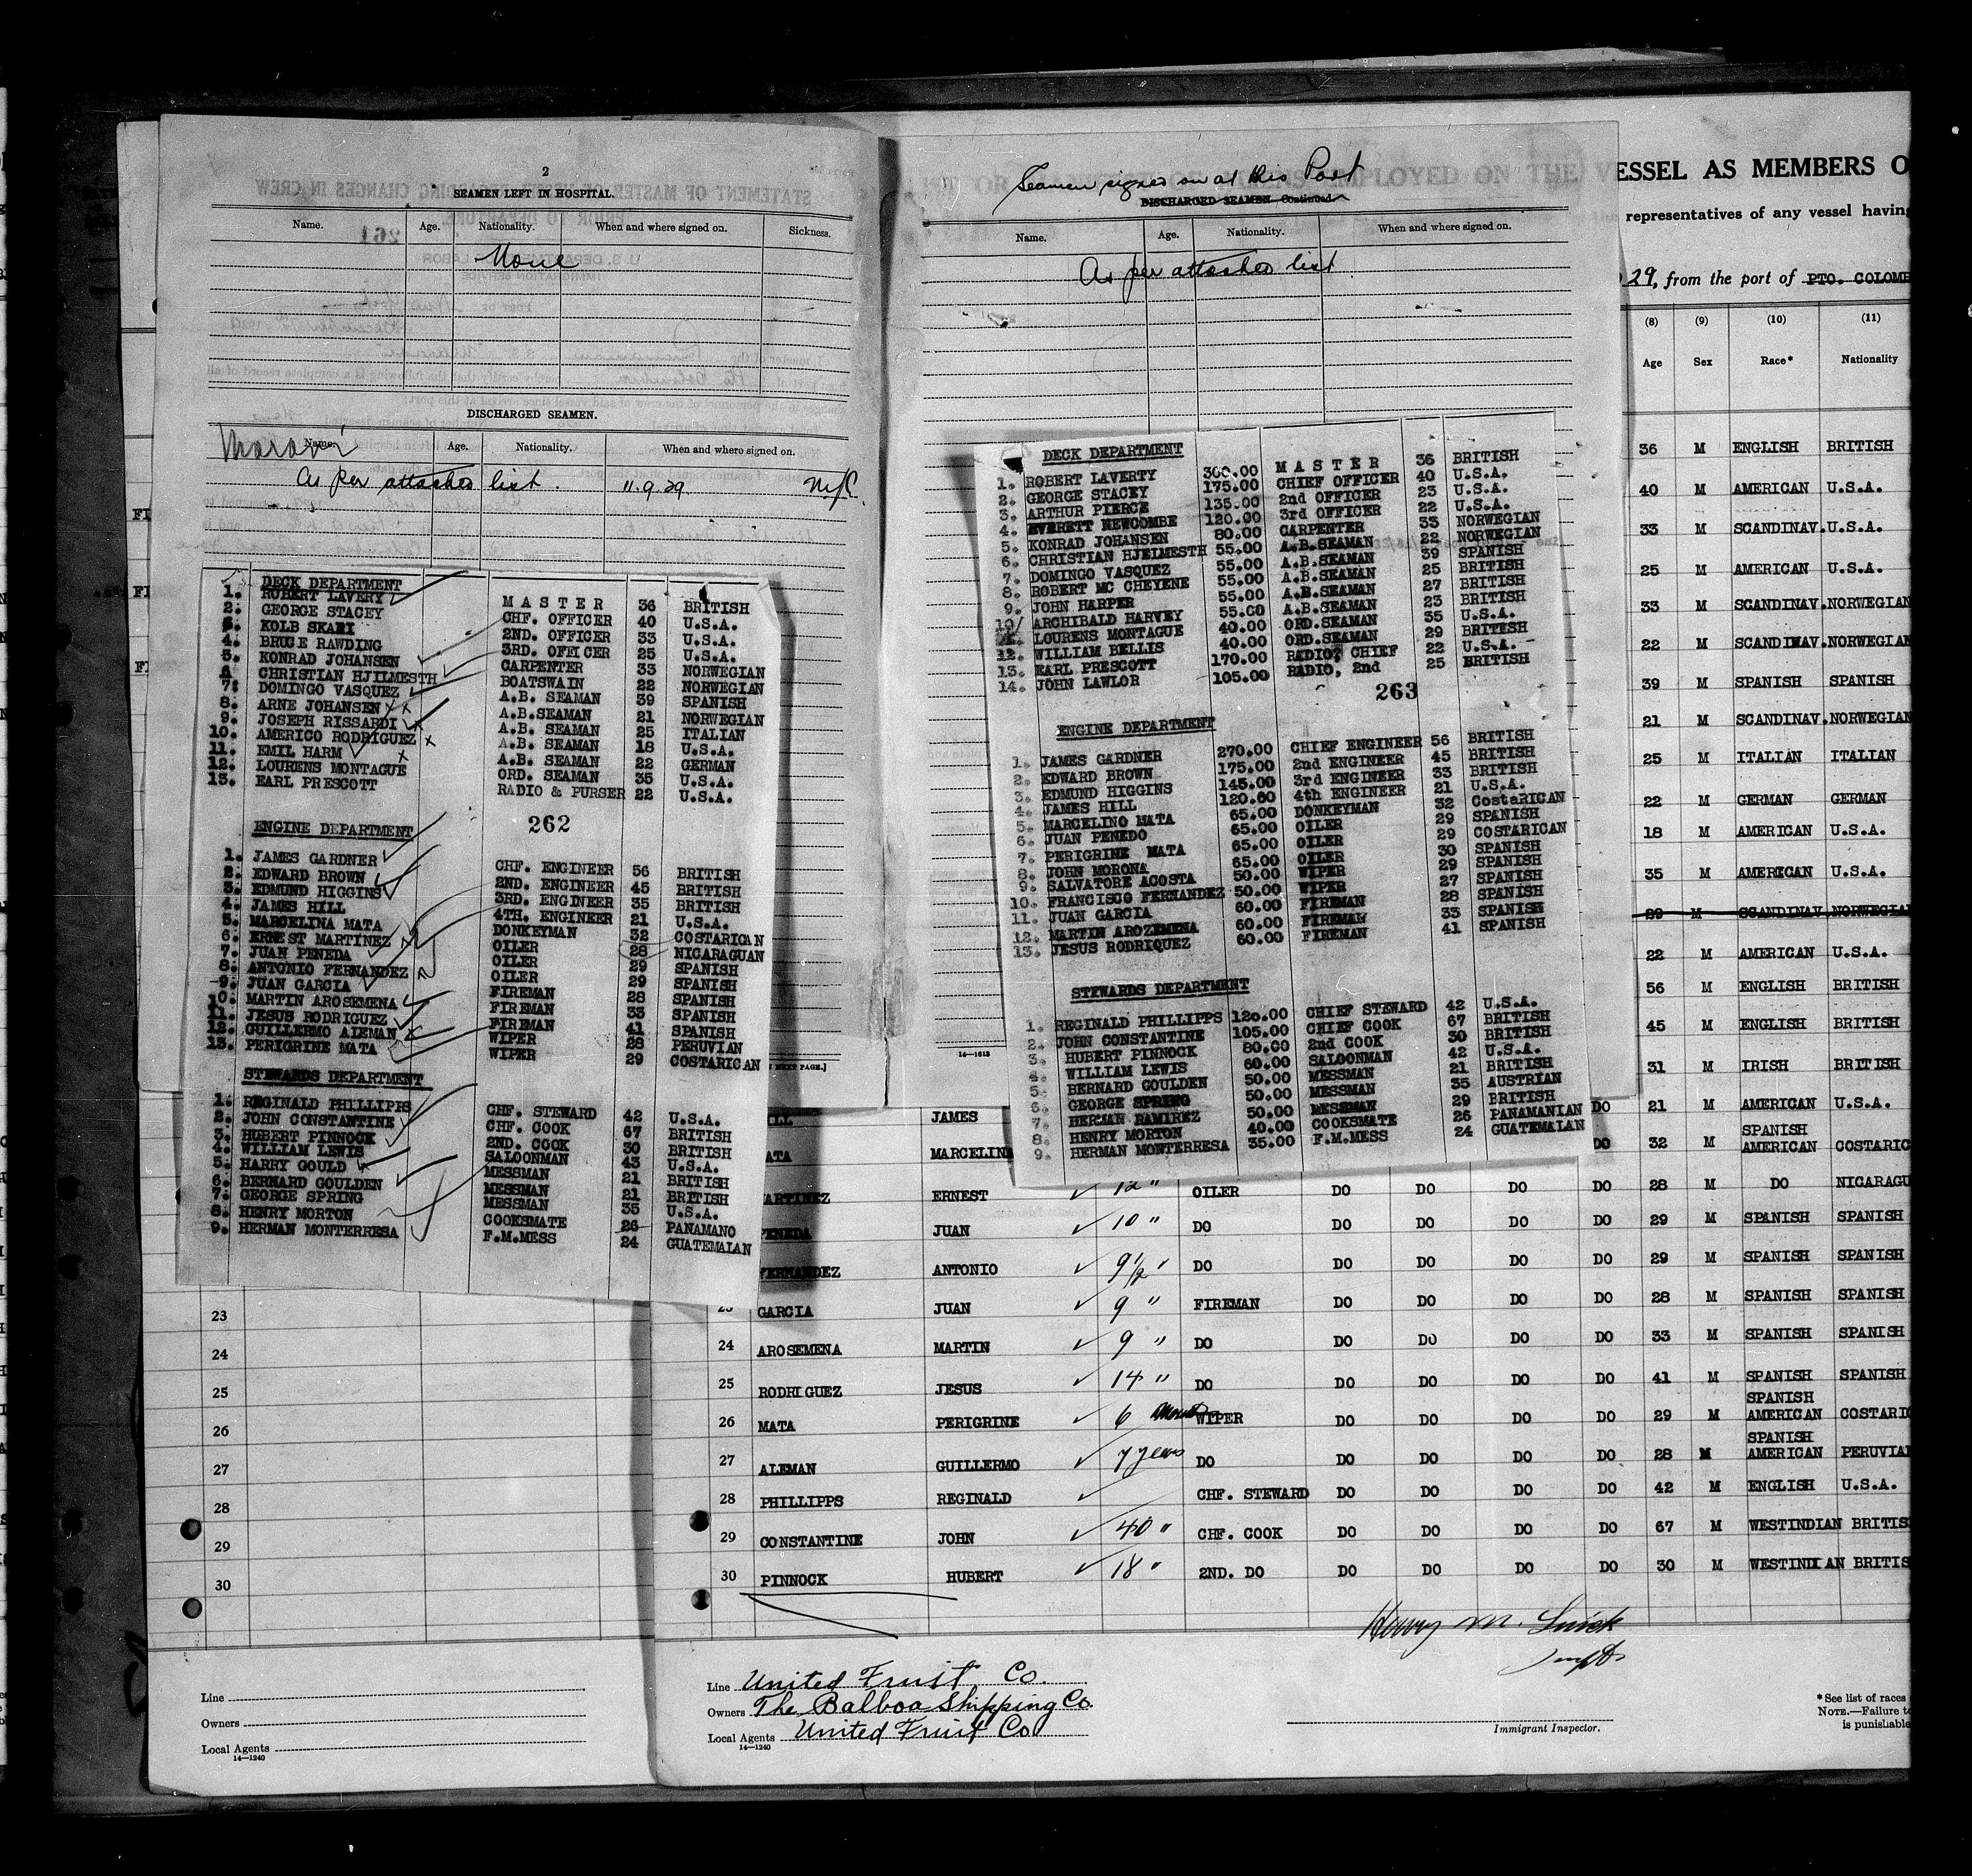 2
SEAMEN LEFT IN HOSPITAL.
Name. Age. Nationality. When and where signed on. Sickness.
None
DISCHARGED SEAMEN.
Name. Age. Nationality. When and where signed on.
As per attached list. 11.9.29
DECK DEPARTMENT
1. ROBERT LAVERY MASTER 36 BRITISH
2. GEORGE STACEY CHF. OFFICER 40 U.S.A.
3. KOLB SKARI 2ND. OFFICER 33 U.S.A.
4. BRUCE RAWDING 3RD. OFFICER 25 U.S.A.
5. KONRAD JOHANSEN CARPENTER 33 NORWEGIAN
6. CHRISTIAN HJILMESTH BOATSWAIN 22 NORWEGIAN
7. DOMINGO VASQUEZ A.B. SEAMAN 39 SPANISH
8. ARNE JOHANSEN A.B.SEAMAN 21 NORWEGIAN
9. JOSEPH RISSARDI A.B. SEAMAN 25 ITALIAN
10. AMERICO RODRIGUEZ A.B. SEAMAN 18 U.S.A.
11. EMIL HARM A.B. SEAMAN 22 GERMAN
12. LOURENS MONTAGUE ORD. SEAMAN 35 U.S.A.
13. EARL PRESCOTT RADIO & PURSER 22 U.S.A.
262
ENGINE DEPARTMENT
1. JAMES GARDNER CHF. ENGINEER 56 BRITISH
2. EDWARD BROWN 2ND. ENGINEER 45 BRITISH
3. EDMUND HIGGINS 3RD. ENGINEER 35 BRITISH
4. JAMES HILL 4TH. ENGINEER 21 U.S.A.
5. MARCELINA MATA DONKEYMAN 32 COSTARICAN
6. ERNEST MARTINEZ OILER 28 NICARAGUAN
7. JUAN PENEDA OILER 29 SPANISH
8. ANTONIO FERNANDEZ OILER 29 SPANISH
9. JUAN GARCIA FIREMAN 28 SPANISH
10. MARTIN AROSEMENA FIREMAN 33 SPANISH
11. JESUS RODRIGUEZ FIREMAN 41 SPANISH
12. GUILLERMO ALEMAN WIPER 28 PERUVIAN
13. PERIGRINE MATA WIPER 29 COSTARICAN
STEWARDS DEPARTMENT
1. REGINALD PHILLIPPS CHF. STEWARD 42 U.S.A.
2. JOHN CONSTANTINE CHF. COOK 67 BRITISH
3. HUBERT PINNOCK 2ND. COOK 30 BRITISH
4. WILLIAM LEWIS SALOONMAN 43 U.S.A.
5. HARRY GOULD MESSMAN 21 BRITISH
6. BERNARD GOULDEN MESSMAN 21 BRITISH
7. GEORGE SPRING MESSMAN 35 U.S.A.
8. HENRY MORTON COOKSMATE 26 PANAMANO
9. HERMAN MONTERRESA F.M.MESS 24 GUATEMALAN
NEXT PAGE.]
23
24
25
26
27
28
29
30
Line
Owners
Local Agents
14—1240
Seamen signed on at this Port
DISCHARGED SEAMEN Continued.
Name. Age. Nationality. When and where signed on.
As per attached list.
DECK DEPARTMENT
1. ROBERT LAVERTY 300.00 MASTER 36 BRITISH
2. GEORGE STACEY 175.00 CHIEF OFFICER 40 U.S.A.
3. ARTHUR PIERCE 135.00 2nd OFFICER 23 U.S.A.
4. EVERETT NEWCOMBE 120.00 3rd OFFICER 22 U.S.A.
5. KONRAD JOHANSEN 80.00 CARPENTER 33 NORWEGIAN
6. CHRISTIAN HJELMESTH 55.00 A.B.SEAMAN 22 NORWEGIAN
7. DOMINGO VASQUEZ 55.00 A.B.SEAMAN 39 SPANISH
8. ROBERT MC CHEYENE 55.00 A.B.SEAMAN 25 BRITISH
9. JOHN HARPER 55.00 A.B.SEAMAN 27 BRITISH
10/ ARCHIBALD HARVEY 55.00 A.B.SEAMAN 23 BRITISH
11. LOURENS MONTAGUE 40.00 ORD.SEAMAN 35 U.S.A.
12. WILLIAM BELLIS 40.00 ORD.SEAMAN 29 BRITISH
13. EARL PRESCOTT 170.00 RADIO, CHIEF 22 U.S.A.
14. JOHN LAWLOR 105.00 RADIO, 2nd 25 BRITISH
263
ENGINE DEPARTMENT
1. JAMES GARDNER 270.00 CHIEF ENGINEER 56 BRITISH
2. EDWARD BROWN 175.00 2nd ENGINEER 45 BRITISH
3. EDMUND HIGGINS 145.00 3rd ENGINEER 33 BRITISH
4. JAMES HILL 120.00 4th ENGINEER 21 U.S.A.
5. MARCELINO MATA 65.00 DONKEYMAN 32 CostaRICAN
6. JUAN PENEDO 65.00 OILER 29 SPANISH
7. PERIGRINE MATA 65.00 OILER 29 COSTARICAN
8. JOHN MORONA 65.00 OILER 30 SPANISH
9. SALVATORE ACOSTA 50.00 WIPER 29 SPANISH
10. FRANCISCO FERNANDEZ 50.00 WIPER 27 SPANISH
11. JUAN GARCIA 60.00 FIREMAN 28 SPANISH
12. MARTIN AROZEMENA 60.00 FIREMAN 33 SPANISH
13. JESUS RODRIQUEZ 60.00 FIREMAN 41 SPANISH
STEWARDS DEPARTMENT
1. REGINALD PHILLIPPS 120.00 CHIEF STEWARD 42 U.S.A.
2. JOHN CONSTANTINE 105.00 CHIEF COOK 67 BRITISH
3. HUBERT PINNOCK 80.00 2nd COOK 30 BRITISH
4. WILLIAM LEWIS 60.00 SALOONMAN 42 U.S.A.
5. BERNARD GOULDEN 50.00 MESSMAN 21 BRITISH
6. GEORGE SPRING 50.00 MESSMAN 35 AUSTRIAN
7. HERMAN RAMIREZ 50.00 MESSMAN 29 BRITISH
8. HENRY MORTON 40.00 COOKSMATE 26 PANAMANIAN
9. HERMAN MONTERRESA 35.00 F.M.MESS 24 GUATEMALAN
14—1613
EMPLOYED ON THE VESSEL AS MEMBERS O
representatives of any vessel having
29, from the port of PTO. COLOMB
(8) (9) (10) (11)
Age Sex Race* Nationality
36 M ENGLISH BRITISH
40 M AMERICAN U.S.A.
33 M SCANDINAV. U.S.A.
25 M AMERICAN U.S.A.
33 M SCANDINAV. NORWEGIAN
22 M SCANDINAV. NORWEGIAN
39 M SPANISH SPANISH
21 M SCANDINAV. NORWEGIAN
25 M ITALIAN ITALIAN
22 M GERMAN GERMAN
18 M AMERICAN U.S.A.
35 M AMERICAN U.S.A.
29 M SCANDINAV. NORWEGIAN
22 M AMERICAN U.S.A.
56 M ENGLISH BRITISH
45 M ENGLISH BRITISH
31 M IRISH BRITISH
JAMES DO 21 M AMERICAN U.S.A.
MATA MARCELINA DO 32 M SPANISH AMERICAN COSTARIC
MARTINEZ ERNEST 12 " OILER DO DO DO DO 28 M DO NICARAGU
PENEDA JUAN 10 " DO DO DO DO DO 29 M SPANISH SPANISH
FERNANDEZ ANTONIO 9 1/2 " DO DO DO DO DO 29 M SPANISH SPANISH
23 GARCIA JUAN 9 " FIREMAN DO DO DO DO 28 M SPANISH SPANISH
24 AROSEMENA MARTIN 9 " DO DO DO DO DO 33 M SPANISH SPANISH
25 RODRIGUEZ JESUS 14 " DO DO DO DO DO 41 M SPANISH SPANISH
26 MATA PERIGRINE 6 WIPER DO DO DO DO 29 M SPANISH AMERICAN COSTARIC
27 ALEMAN GUILLERMO 7 years DO DO DO DO DO 28 M SPANISH AMERICAN PERUVIAN
28 PHILLIPPS REGINALD CHF. STEWARD DO DO DO DO 42 M ENGLISH U.S.A.
29 CONSTANTINE JOHN 40 " CHF. COOK DO DO DO DO 67 M WESTINDIAN BRITIS
30 PINNOCK HUBERT 18 " 2ND. DO DO DO DO DO 30 M WESTINDIAN BRITIS
Line United Fruit Co.
Owners The Balboa Shipping Co.
Local Agents United Fruit Co.
14—1240
Immigrant Inspector.
*See list of races
NOTE.—Failure to
is punishable